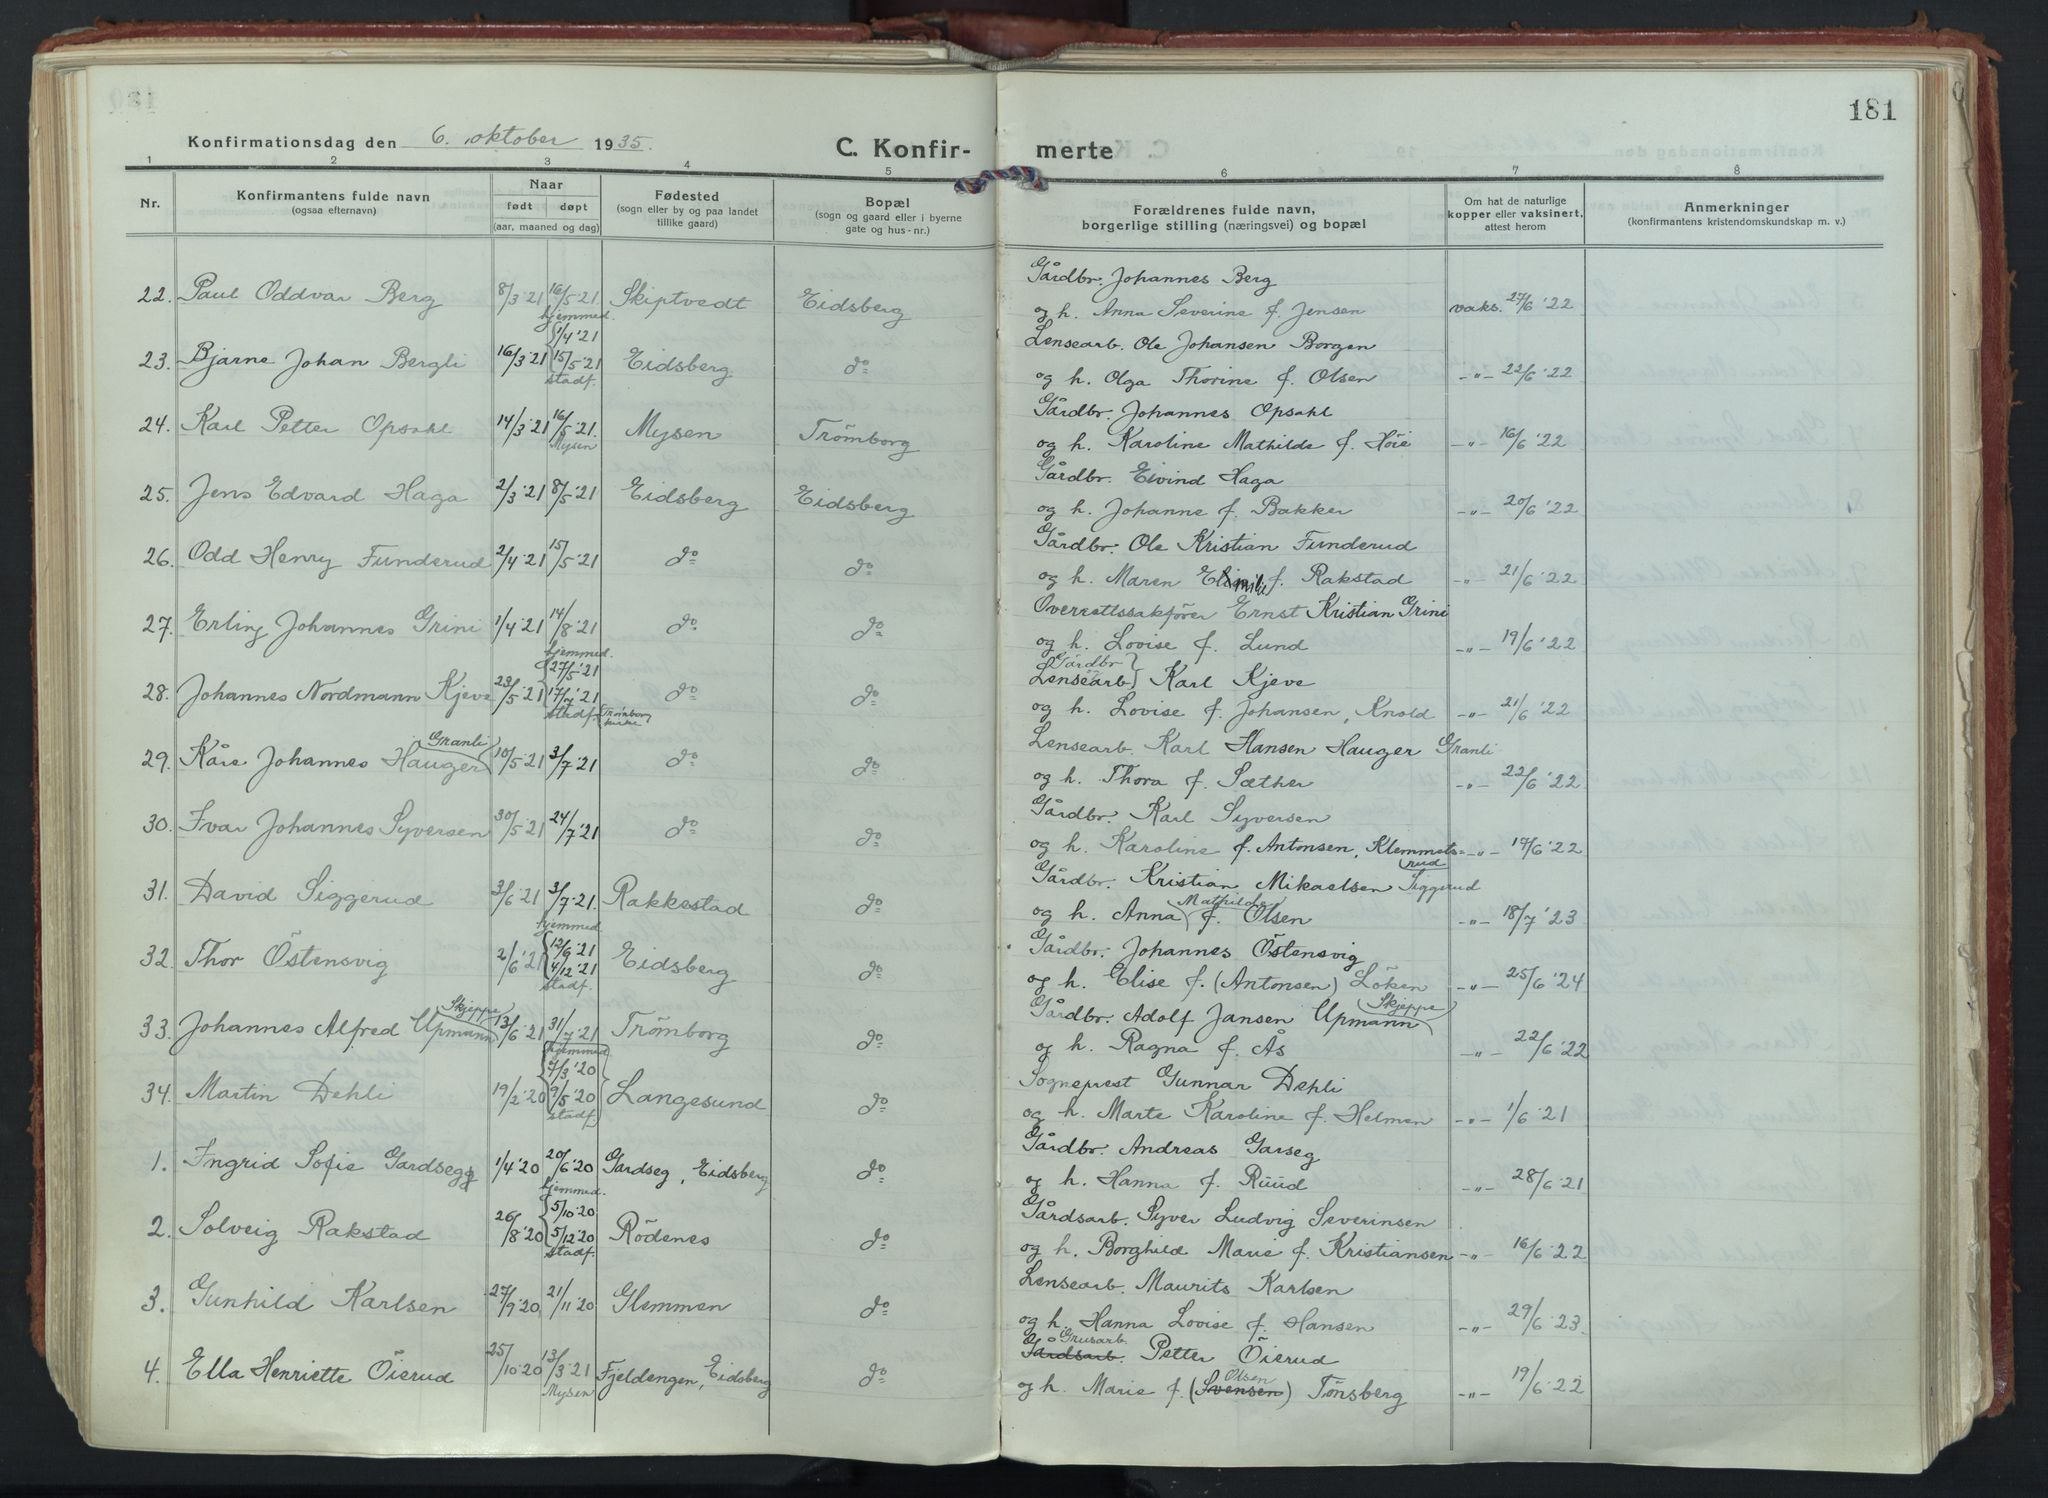 181
Konfirmationsdag den 6. oktober 1935. C. Konfir- merte
1 2 3 4 5 6 7 8
Nr. Konfirmantens fulde navn (ogsaa efternavn) Naar født døpt (aar, maaned og dag) Fødested (sogn eller by og paa landet tillike gaard) Bopæl (sogn og gaard eller i byerne gate og hus-nr.) Forældrenes fulde navn, borgerlige stilling (næringsvei) og bopæl Om hat de naturlige kopper eller vaksinert, attest herom Anmerkninger (konfirmantens kristendomskundskap m. v.)
Gårdbr. Johannes Berg
22. Paul Oddvar Berg 8/3 21 16/5 21. Skiptvedt Eidsberg og h. Anna Severine f. Jensen vaks. 27/6 '22
hjemmed. Lensearb. Ole Johansen Borgen
23. Bjarne Johan Bergli 16/3 21 {1/4 '21 15/5 '21 stadf. Eidsberg do og h. Olga Thorine f. Olsen -"- 22/6 '22
Gårdbr. Johannes Opsahl
24. Karl Petter Opsahl 14/3 '21 16/5 '21. Mysen Mysen Trömborg og h. Karoline Mathilde f. Höie -"- 16/6 '22
Gårdbr. Eivind Haga
25. Jens Edvard Haga 2/3 '21 8/5 '21 Eidsberg Eidsberg og h. Johanne f. Bakker -"- 20/6 '22
Gårdbr. Ole Kristian Funderud
26. Odd Henry Funderud 2/4 21 15/5 '21 do do og h. Maren Emilie f. Rakstad -"- 21/6 '22
Overrettssakförer Ernst Kristian Grini
27. Erling Johannes Grini 1/4 '21 14/8 '21 do do og h. Lovise f. Lund -"- 19/6 '22
hjemmed. Gårdbr. }
Lensearb } Karl Kjeve
28. Johannes Nordmann Kjeve 23/5 '21 {27/5 '21 17/7 '21 stadf. Trömborg kirke do do og h. Lovise f. Johansen, Knold -"- 21/6 '22
Granli Lensearb. Karl Hansen Hauger Granli
29. Kåre Johannes Hauger 10/5 '21 3/7 '21 do do og h. Thora f. Sæther -"- 22/6 '22
Gårdbr. Karl Syversen
30. Ivar Johannes Syversen 30/5 '21 24/7 '21 do do og h. Karoline f. Antonsen, Klemmets- -"- 17/6 '22
rud
Gårdbr. Kristian Mikaelsen Siggerud
31. David Siggerud 3/6 '21 3/7 '21. Rakkestad do og h. Anna Mathilde f. Olsen -"- 18/7 '23
hjemmed. Gårdbr. Johannes Östensvig
32. Thor Östensvig 2/6 '21 {12/6 '21 4/12 '21 stadf. Eidsberg do og h. Elise f. (Antonsen) Löken -"- 25/6 '24
Skjeppe Gårdbr. Adolf Jansen Upmann Skjeppe
33. Johannes Alfred Upmann 13/6 '21 31/7 '21 Trömborg do og h. Ragna f. Ås -"- 22/6 '22
hjemmed Sogneprest Gunnar Dehli
34. Martin Dehli 19/2 '20 {7/3 '20 9/5 '20 stadf.} Langesund do og h. Marte Karoline f. Helmen -"- 1/6 '21
Gårdbr. Andreas Garseg
1. Ingrid Sofie Gardsegg 1/4 '20 20/6 '20 Gardseg, Eidsberg do og h. Hanna f. Ruud -"- 28/6 '21
hjemmed. Gårdsarb. Syver Ludvig Severinsen
2. Solveig Rakstad 26/8 '20 {5/10 '20 5/12 '20 stadf. Rödenes do og h. Borghild Marie f. Kristiansen -"- 16/6 '22
Lensearb. Maurits Karlsen
3. Gunhild Karlsen 27/9 '20 21/11 '20 Glemmen do og h. Hanna Lovise f. Hansen -"- 29/6 '23.
Grusarb.
Gårdsarb. Petter Öierud
4. Ella Henriette Öierud 25/10 '20 13/3 '21 Mysen Fjeldengen, Eidsberg do og h. Marie f. (Svensen Olsen) Tönsberg -"- 19/6 '22